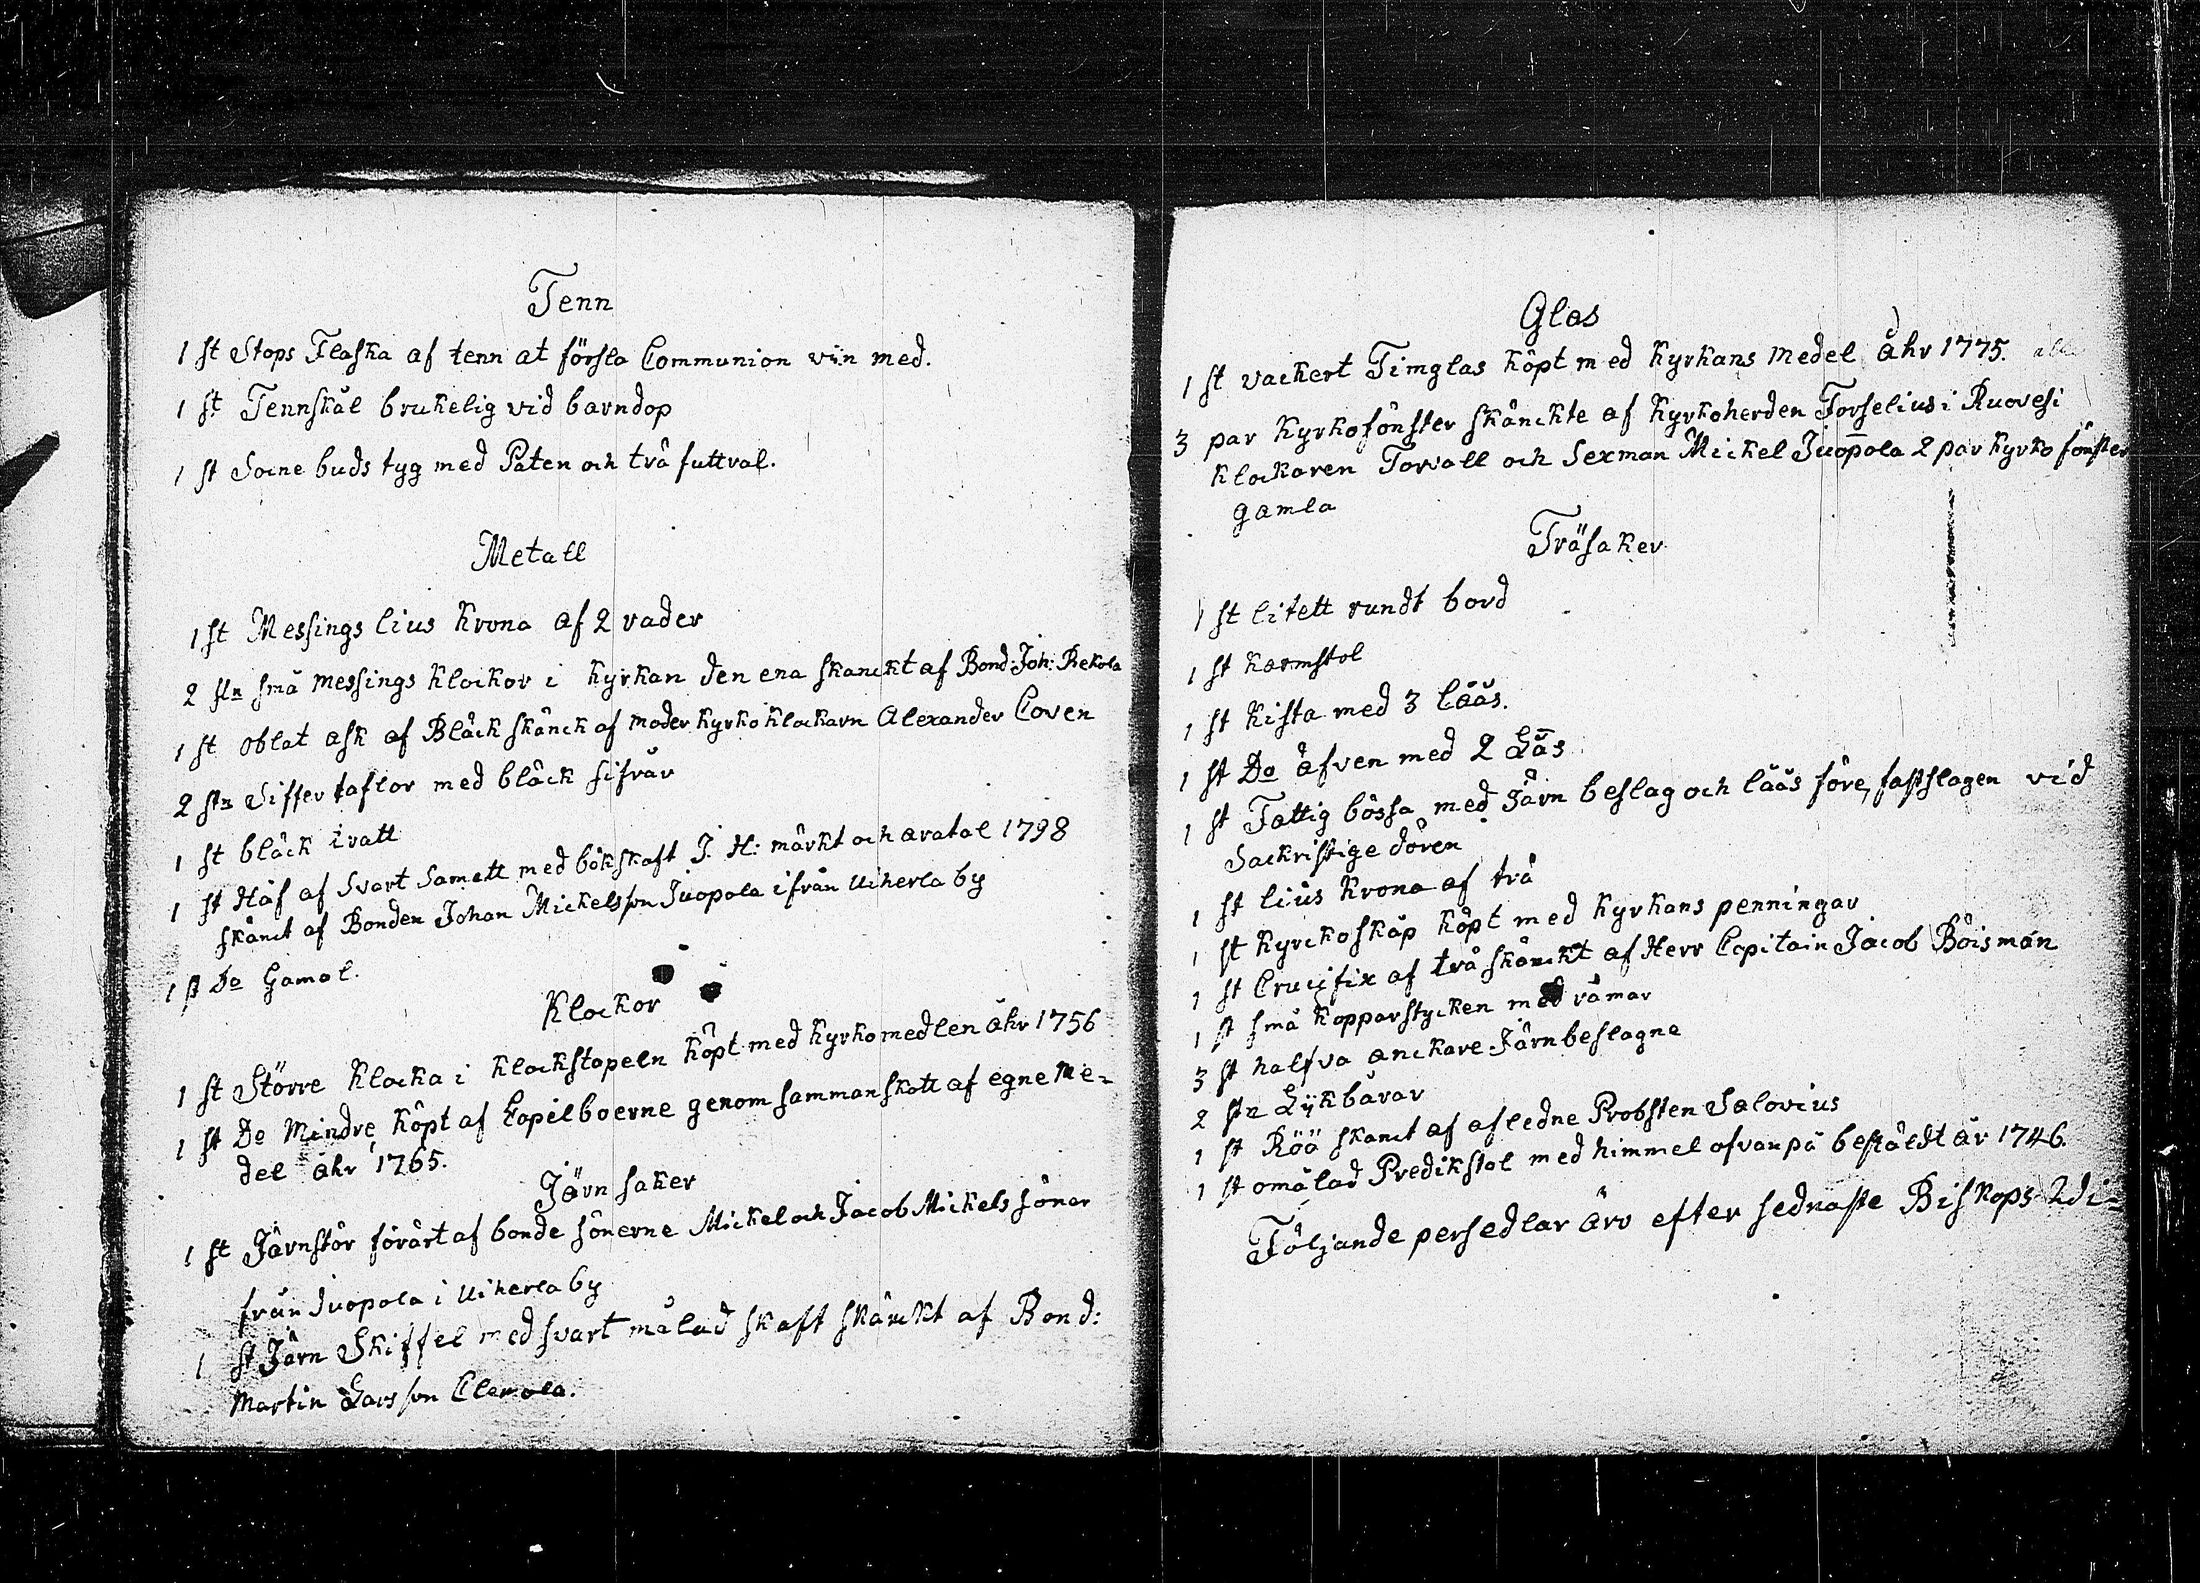 Tenn
1 st Stops Flaska af tenn at försla Communion vin med.
1 st Tennskål brukelig vid barndop
1 st Socne buds tyg med Paten och trä futtral.
Metall
1 st Messings lius Krona af 2 rader
2 stn små messings Klockor i Kyrkan den ena skanckt af Bond: Joh: Rekola
1 st oblat ask af Bläck skänck af moder Kyrko Klockarn Alexander Coven
2 stn Siffer taflor med bläck sifrar
1 st bläck tratt
1 st Håf af Svart Samett med bökskaft J. H: märkt och aratal 1798
skänct af Bonden Johan Mickelsson Juopola ifrån Uiherla by
1 st Do Gamal.
Klockor
1 st Större Klocka i Klockstapeln köpt med Kyrko medlen åhr 1756
1 st Do Mindre köpt af Capilboerne genom sammanskott af egne me=
del åhr 1765.
Järn saker
1 st Järnstör förärt af bonde sönerne Mickel och Jacob Mickels söner
från Juopola i Uiherla by
1 st Järn Skiffel med svart målad skaft skänckt af Bond:
Martin Larsson Clemola.
Glas
1 st vackert Timglas köpt med Kyrkans medel åhr 1775.
3 par Kyrkofönster skänckte af Kyrkoherden Forselius i Ruovesi
Klockaren Torvall och Sexman Mickel Juopola 2 par Kyrko fönster
gamla
Träsaker
1 st litett rundt bord
1 st karmstol
1 st Kista med 3 lääs.
1 st Do äfven med 2 Läs
1 st Fattig bössa med Järn beslag och lääs före, fastslagen vid
Sackristige dören
1 st lius Krona af trä
1 st Kyrckoskåp köpt med Kyrkans penningar
1 st Crucifix af trä skänckt af Herr Capitain Jacob Böisman
1 st små kopparstycken med rämar
3 st halfva anckare Järnbeslagne
2 stn Lykbårar
1 st Röö skanct af afledne Probsten Salovius
1 st omålad Predikstol med himmel ofvanpå beståldt år 1746.
Följande persedlar äro efter sednaste Biskops Vi=